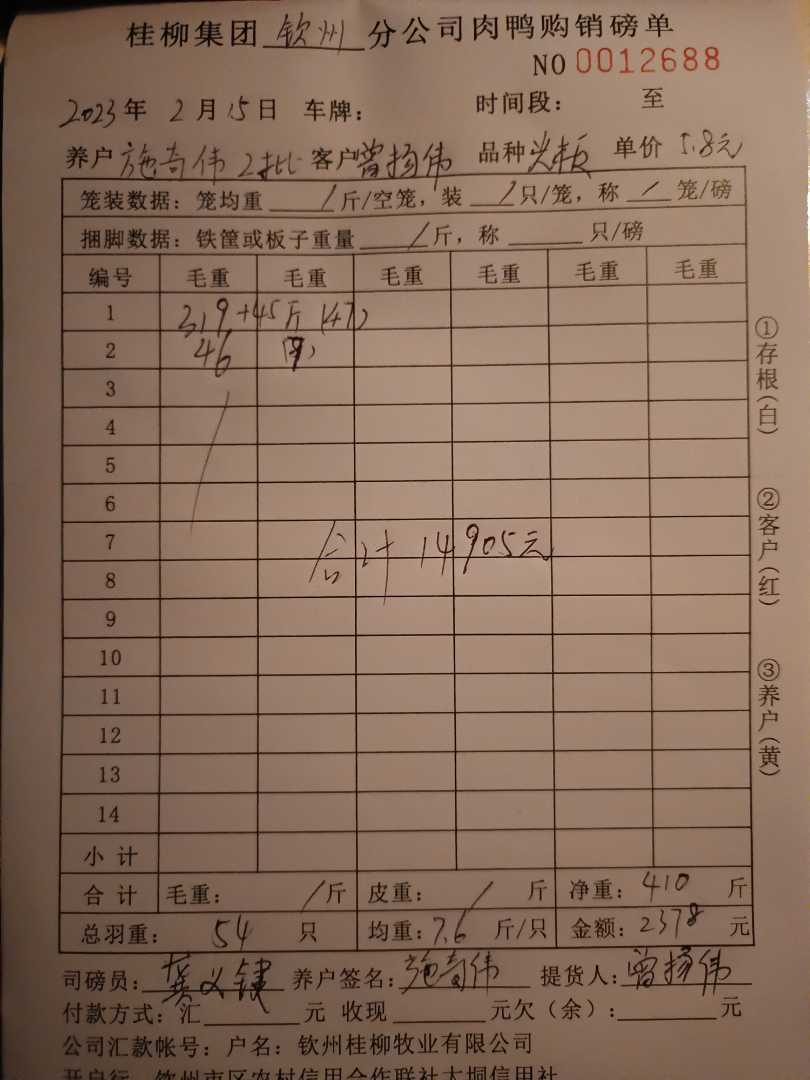 桂柳集团 钦州 分公司肉鸭购销磅单
NO 0012688
2023年 2月15日 车牌： 时间段： 至
养户 施奇伟 2批 客户 曾扬伟 品种 单价 5.8元
笼装数据：笼均重 / 斤/空笼，装 / 只/笼，称 / 笼/磅
捆脚数据：铁筐或板子重量 / 斤，称 只/磅
编号 毛重 毛重 毛重 毛重 毛重 毛重
1 319+45斤 (47)
2 46 (7)
3
4
5
6
7
合计 14905元
8
9
10
11
12
13
14
小计
合计 毛重： / 斤 皮重： / 斤 净重：410 斤
总羽重： 54 只 均重：7.6 斤/只 金额：2378 元
司磅员：龚义键 养户签名：施奇伟 提货人：曾扬伟
付款方式：汇 元 收现 元欠（余）： 元
公司汇款帐号：户名：钦州桂柳牧业有限公司
开户行 钦州市区农村信用合作联社大垌信用社
①存根(白)
②客户(红)
③养户(黄)